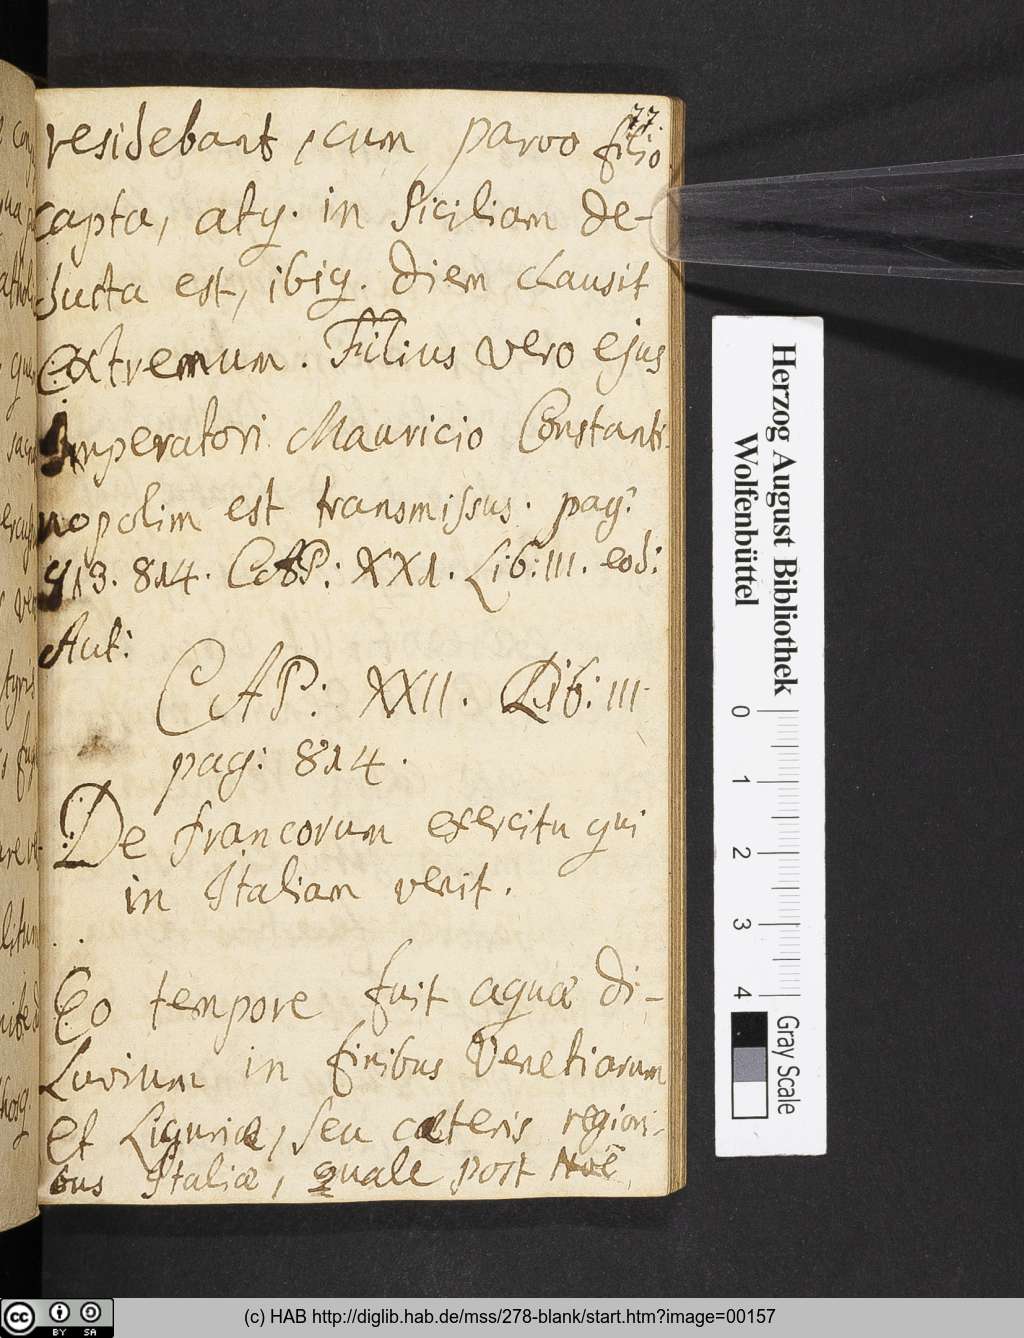 77.
residebant, cum parvo filio
capta, atq. in Siciliam de-
ducta est, ibiq. diem clausit
extremum. Filius vero ejus
Imperatori Mauricio Constanti-
nopolim est transmissus. pag:
813. 814. CAP: XXI. Lib: III. eod:
Aut:
CAP: XXII. Lib: III.
pag: 814.
De francorum exercitu qui
in Italiam venit.
Eo tempore fuit aquæ di-
luvium in finibus Venetiarum
et Liguriæ, seu cæteris region:
bus Italiæ, quale post Noë
Herzog August Bibliothek
Wolfenbüttel
0 1 2 3 4
Gray Scale
cc BY SA
(c) HAB http://diglib.hab.de/mss/278-blank/start.htm?image=00157